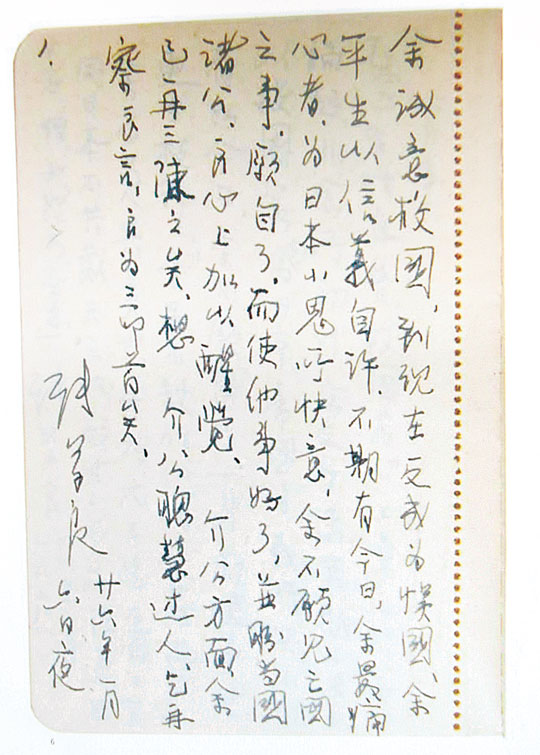 余誠意救國,到現在反成为悮國、余
平生以信義自許,不期有今日,余最痛
心者,为日本小鬼所快意,余不願見亡國
之事,願自了,而使他事好了,並盼当國
諸公、良心上加以醒覺、 介公方面余
已再三陳之矣、想 介公聰慧过人、乞再
察良言,良为三叩首矣、
张学良
廿六年一月
六日夜
1.
6